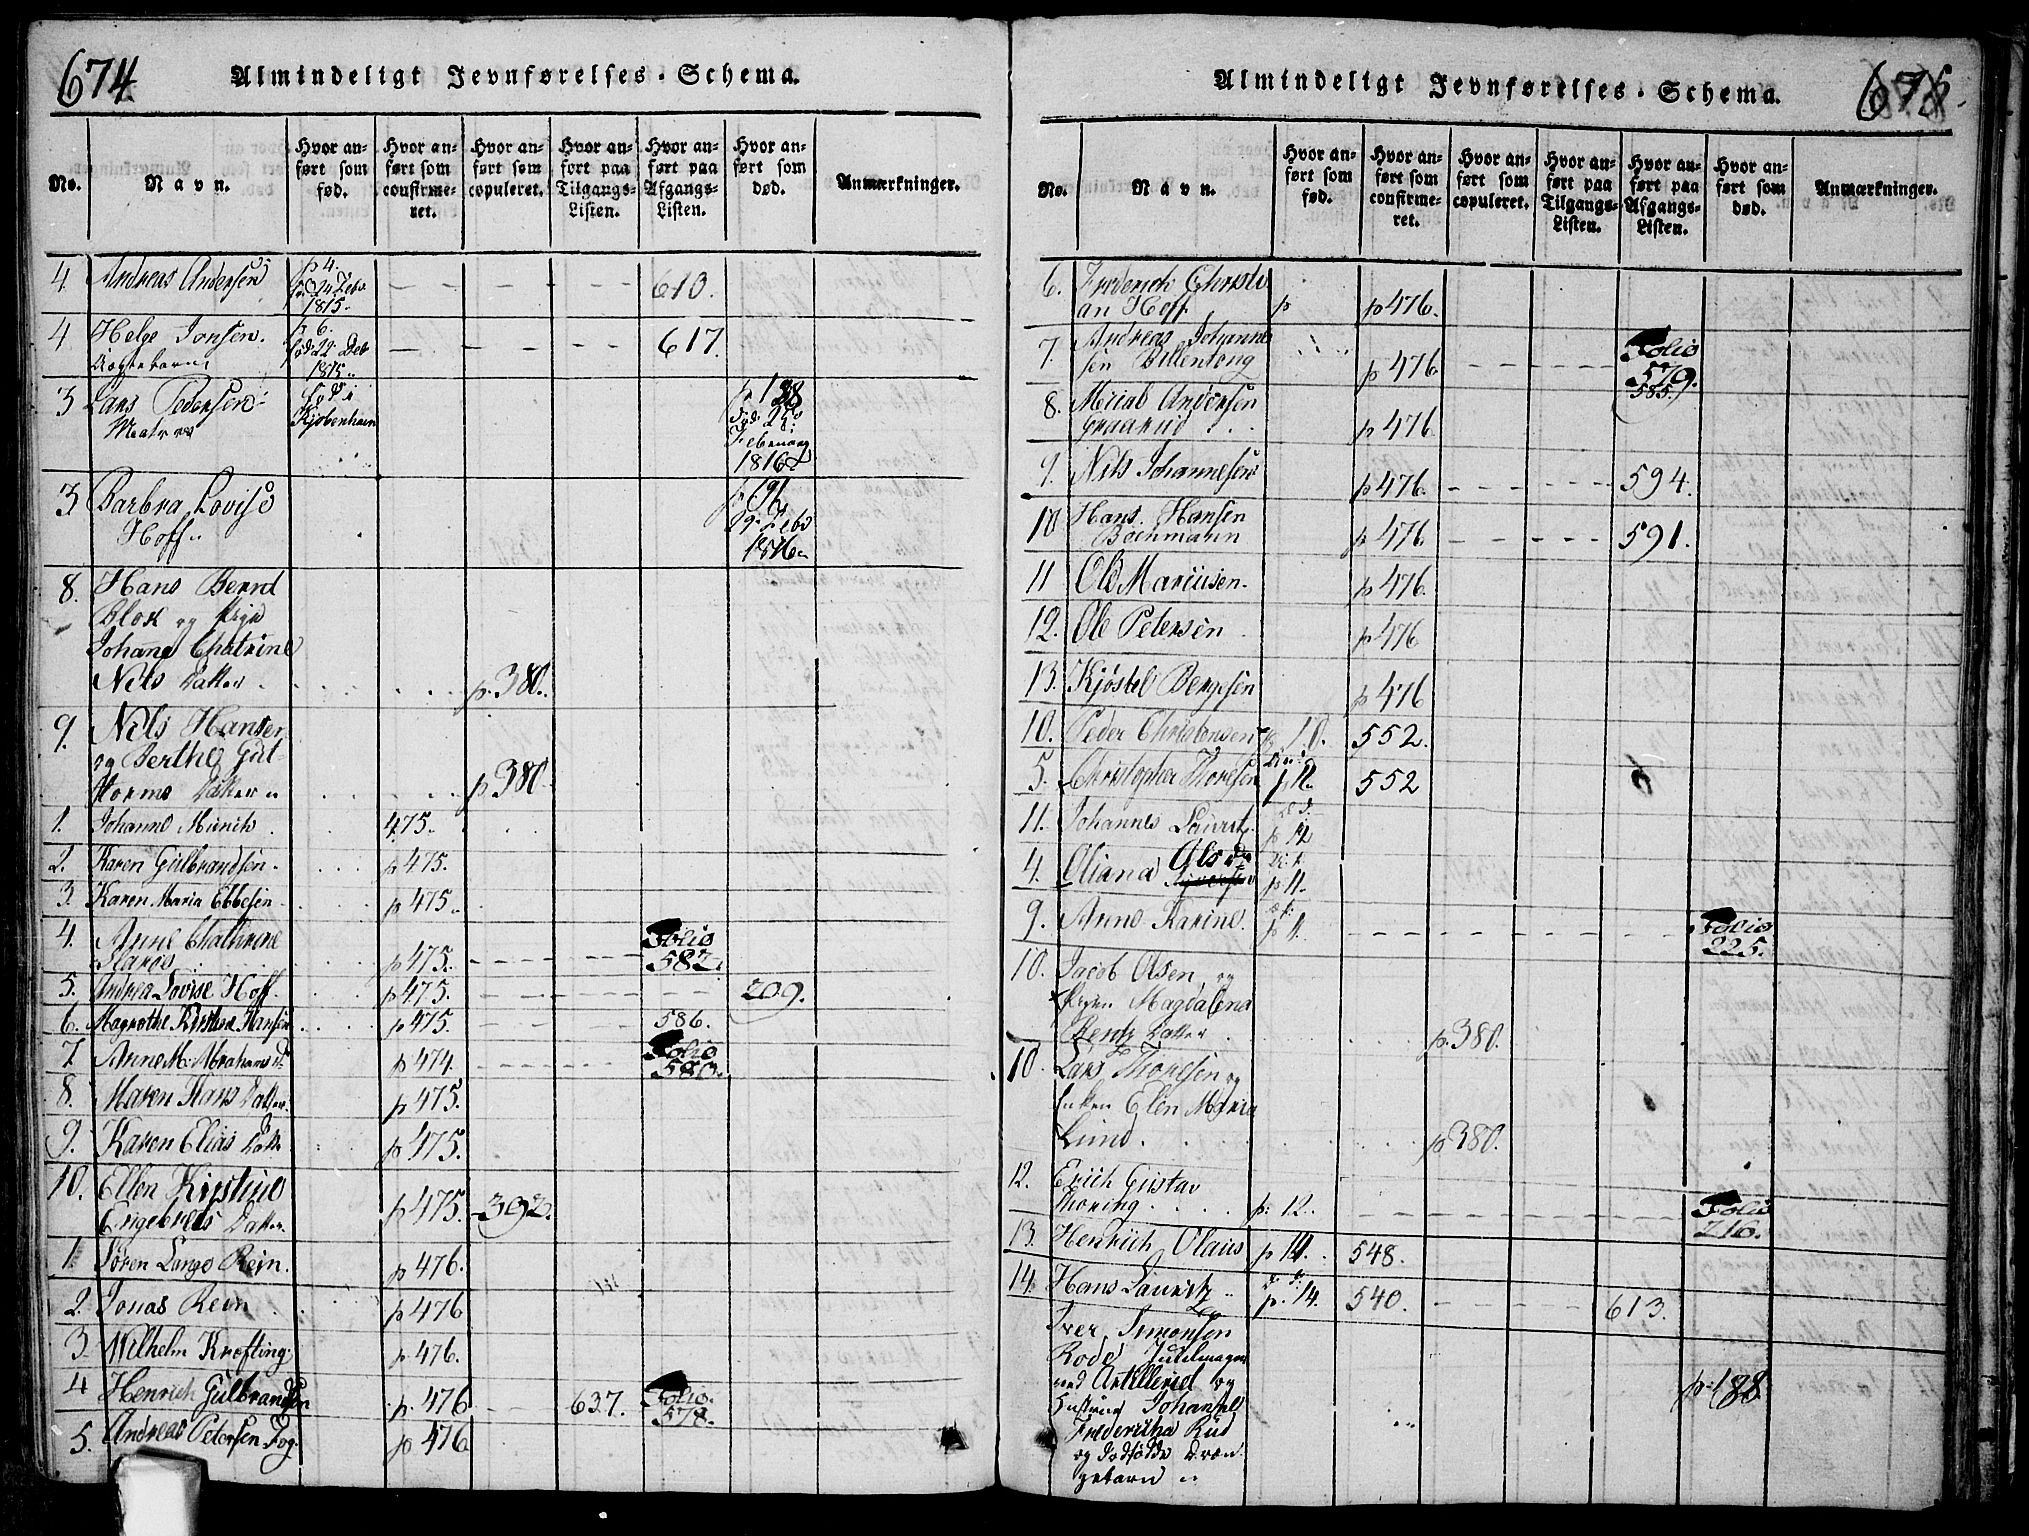 674
Almindeligt Jevnførelses-Schema.
No.
Navn.
Hvor an-
ført som
fød.
Hvor an-
ført som
confirme-
ret.
Hvor an-
ført som
copuleret.
Hvor an-
ført paa
Tilgangs-
Listen.
Hvor an-
ført paa
Afgangs-
Listen.
Hvor an-
ført som
død.
Anmærkninger.
4 Andreas Andersen p 4. 24 Febr 1815. 610.
4 Helge Jonsen. p 6. 22 Febr 1815. 617.
3 Lars Pedersen Kjöbenhavn p 188 Februarg 1816
3 Barbra Lovise
Hoff 1816
8. Hans Bernt
Blok og Pige
Johane Chatrine
Nils Datter p. 380.
9. Nils Hansen
og Berthe Gut-
torms Datter p 380.
1. Johanne Munch 475.
2. Karen Gulbrandsen p 475.
3. Karen Maria Ebbesen p 475.
4. Anne Chathrine
p 475. Folio
582.
5. Andrea Lovise Hoff p 475. 209.
6. Magrethe Kirstine Hansen p 475. 586.
7. Anne M. Abrahamsd p 474. Folio
580.
8. Maren Hans Datter p 475.
9. Karen Elias Datt p 475.
10. Ellen Kirstine
Engebrets Datter p 475. 392.
1. Sören Lange Rein. p 476.
2. Jonas Rein p 476
3. Wilhelm Krefting p 476.
4 Henrich Gulbrandsen p. 476 637. Folio.
578.
5. Andreas Petersen Fog p 476
675.
Almindeligt Jevnførelses-Schema.
No.
Navn.
Hvor an-
ført som
fød.
Hvor an-
ført som
confirme-
ret.
Hvor an-
ført som
copuleret.
Hvor an-
ført paa
Tilgangs-
Listen.
Hvor an-
ført paa
Afgangs-
Listen.
Hvor an-
ført som
død.
Anmærkninger.
6. Frederich Christi
an Hoff. p p 476.
7. Andreas Johannes
sen Billentong p 476. Folio
579.
585.
8. Andersen
Graarud p 476
9. Nils Johannesen p 476. 594.
10 Hans Hansen
Boenmann p 476. 591.
11 Ole Mariusen. p 476.
12. Ole Petersen p 476
13. Kjöstel Bergesen p 476
10. Peder Christensen 10. 552.
5. Christopher Thoresen p 11. 552
11. Johannes Lauritz p 12
4. Oliana Olsd p 11.
9. Anne Karine. p 11. Folio
225.
10. Jacob Olsen og
Pigen Magdalena
Rentz Datter p. 380.
10. Lars Thoresen og
Enken Elen Maria
Lund. p 380.
12. Erich Gustav
Thoring p. 12. Folio
216.
13. Henrich Olaus p 14. 548.
14. Hans Lauritz p. 14. 540. 613.
Iver Simonsen
Rode
ved Artilleriet og
Hustrue Johanne
Frederikke Rud
og Dødfødte Dren
gebarn p. 188.